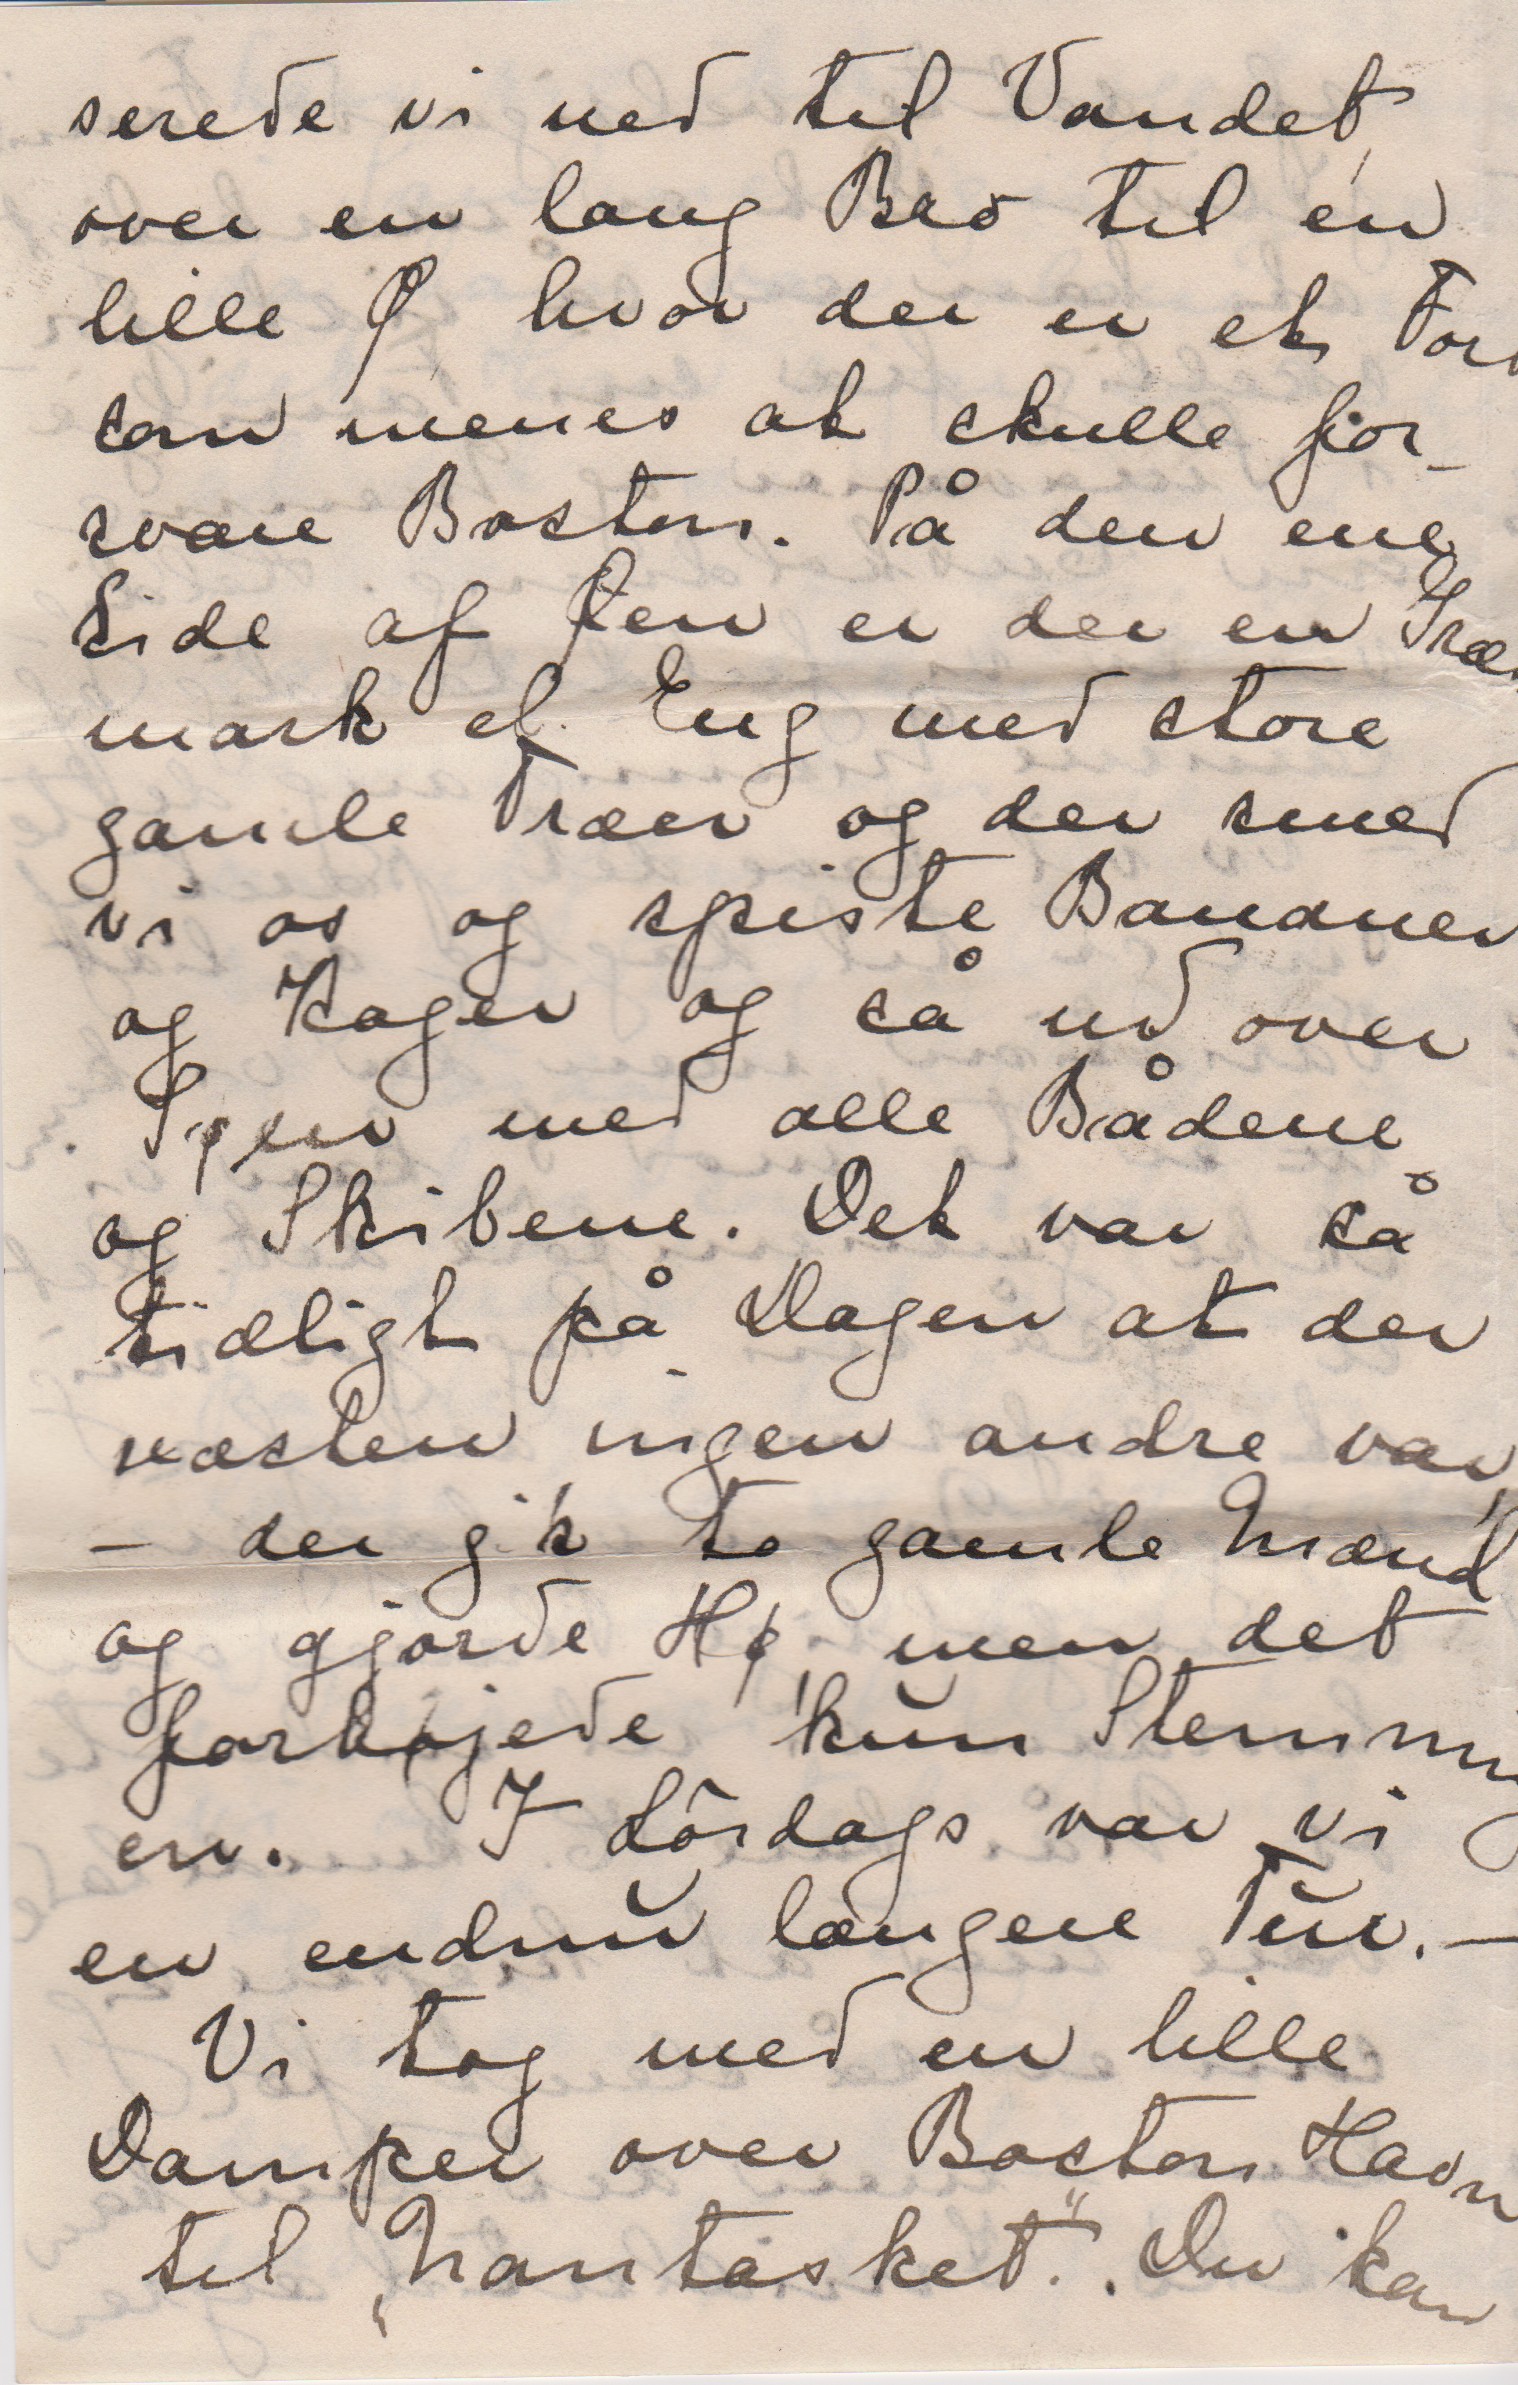 serede vi ned til Vandet,
over en lang Bro til en
lille Ø hvor der er et Fort
som menes at skulle for-
svare Boston. På den ene
Side af Øen er der en Græs
mark el. Eng med store
gamle Træer og der smed
vi os og spiste Bananer
og Kager og så ud over
Søen med alle Bådene
og Skibene. Det var så
tidligt på Dagen at der
næsten ingen andre var,
- der gik to gamle Mænd
og gjorde Hø, men det
forhøjede kun Stemning
en. I Lördags var vi
en endnu længere Tur. -
Vi tog med en lille
Damper over Boston Havn
til „Nantasket". Du kan